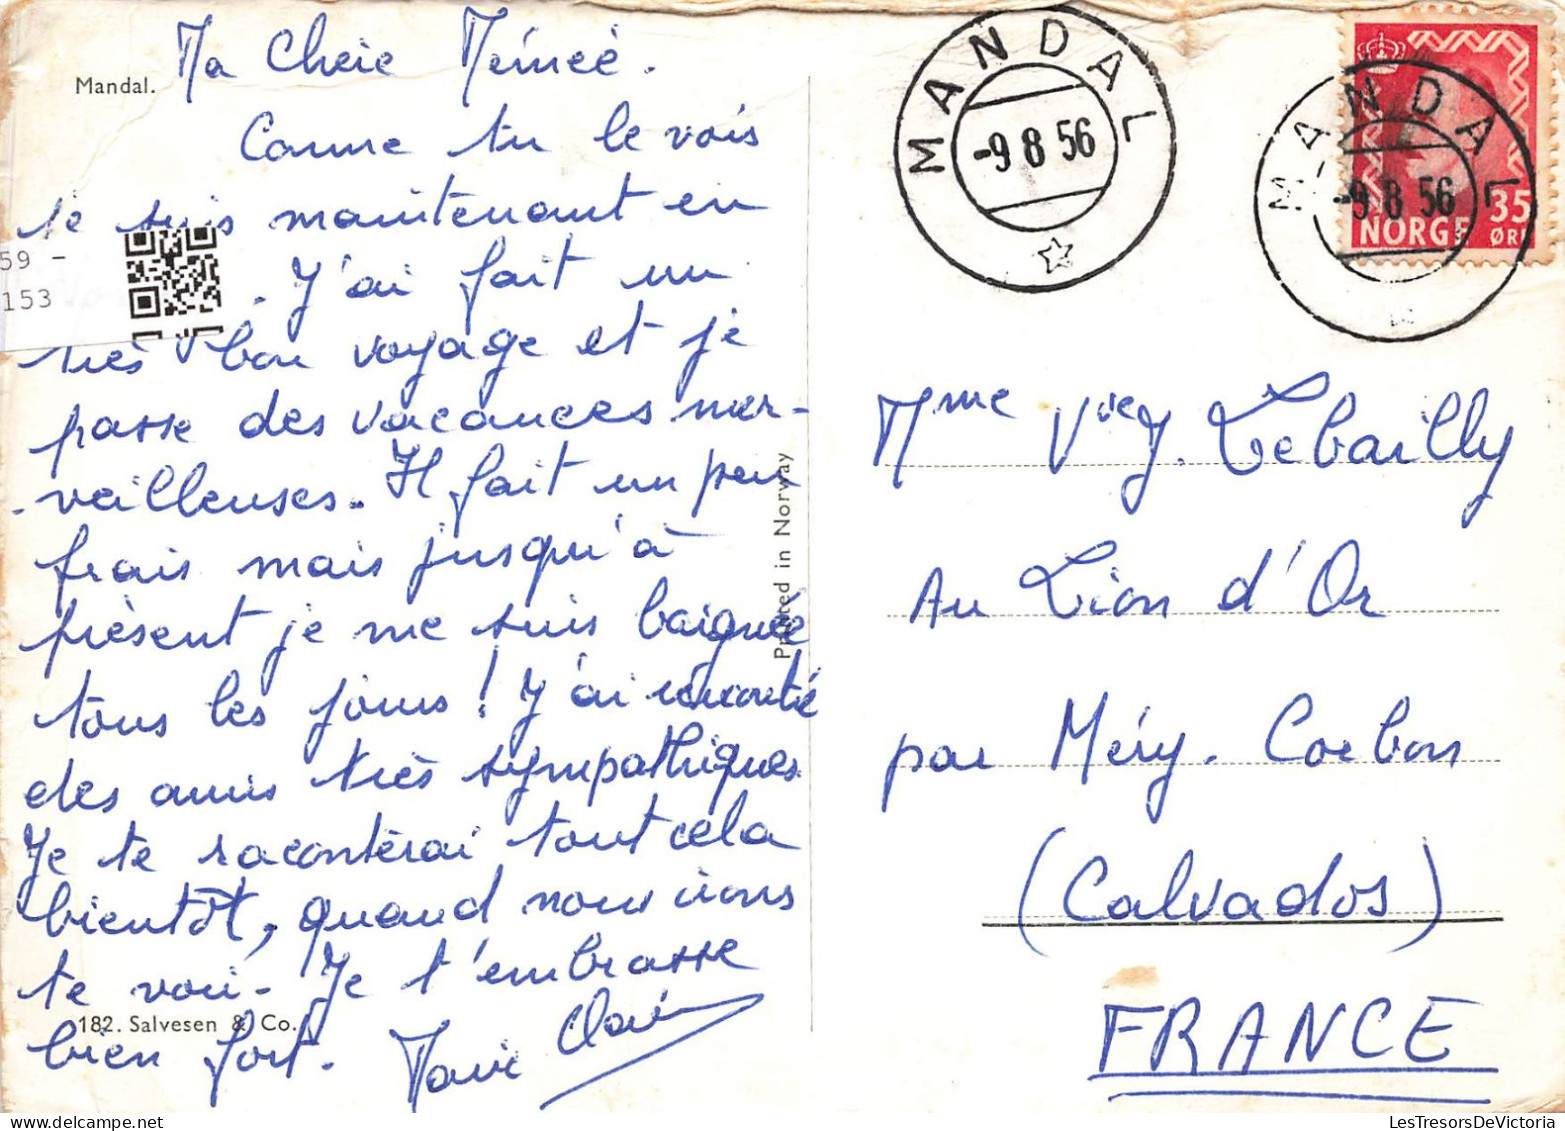 Mandal.
Ma Chère Mémée.
Comme tu le vois
je suis maintenant en
59 -
153
. J'ai fait un
très bon voyage et je
passe des vacances mer-
-veilleuses. Il fait un peu
frais mais jusqu'à
présent je me suis baignée
tous les jours ! J'ai rencontré
des amis très sympathiques
Je te raconterai tout cela
bientôt, quand nous irons
te voir. Je t'embrasse
bien fort. Marie Claire
182. Salvesen & Co.
Printed in Norway
MANDAL
-9 8 56
MANDAL
-9 8 56
NORGE 35
ØRE
Mme Vve J. Lebailly
Au Lion d'Or
par Méry. Corbon
(Calvados)
FRANCE
LesTresorsDeVictoria.com